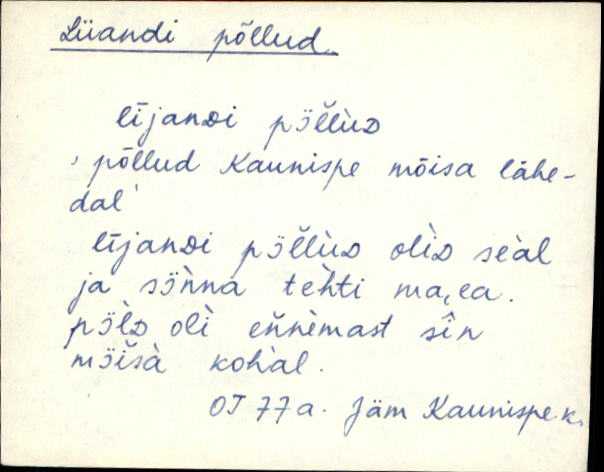 Liiandi põllud.
lījanᴅi pö̆llùᴅ
'põllud Kaunispe mõisa lähe-
dal'
lījanᴅi pö̆llùᴅ olìᴅ seàl
ja sö̀nna tèhti ma,ea.
pö̀lᴅ olì eǹnemast sîn
möĭsà kohàl.
OT 77 a. Jäm Kaunispe k.